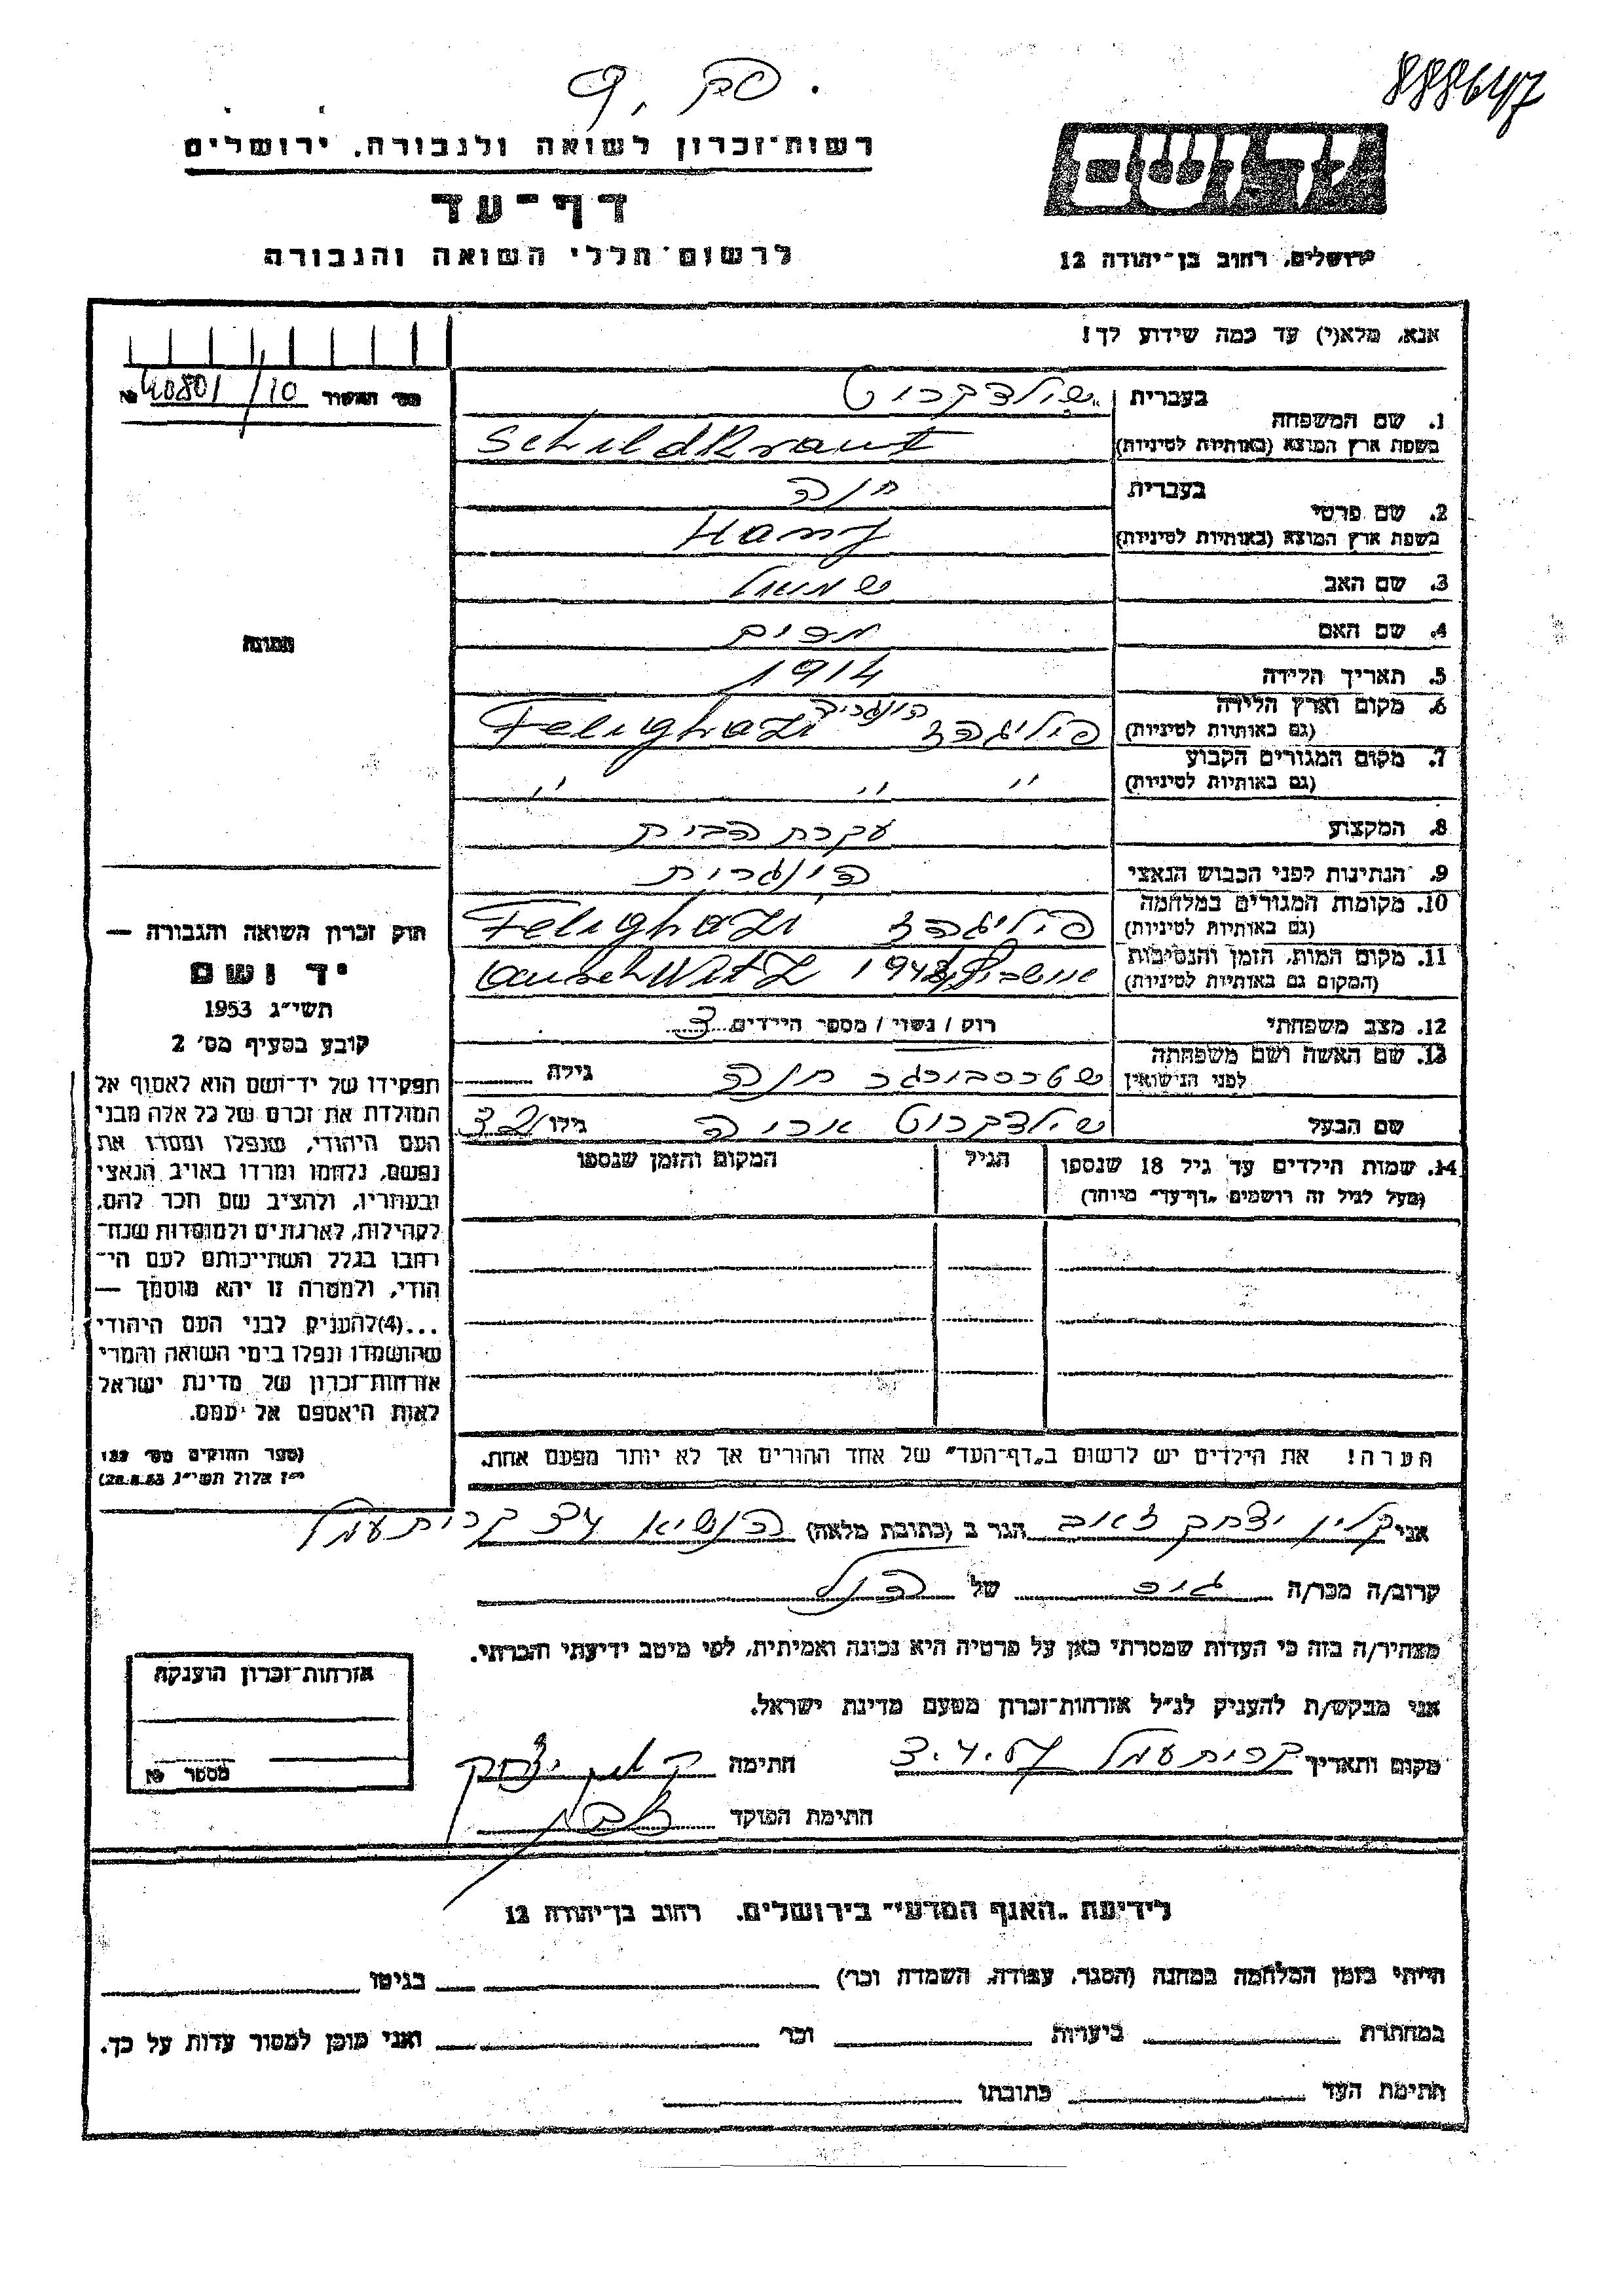 888647
רשות־זכרון לשואה ולגבורה, ירושלים
דף־עד
לרשום חללי השואה והגבורה
יד ושם
ירושלים, רחוב בן־יהודה 12
אנא, מלא(י) עד כמה שידוע לך!
מס׳ האשור 40801/10 №
בעברית שילדקרוט
1. שם המשפחה
בשפת ארץ המוצא (באותיות לטיניות) Schildkraut
בעברית חנה
2. שם פרטי
בשפת ארץ המוצא (באותיות לטיניות)
3. שם האב שמואל
4. שם האם מרים
5. תאריך הלידה 1914
6. מקום וארץ הלידה הונגריה
(גם באותיות לטיניות) פליגהזי Felighazi
7. מקום המגורים הקבוע
(גם באותיות לטיניות) " " "
8. המקצוע עקרת הבית
9. הנתינות לפני הכבוש הנאצי הונגרית
10. מקומות המגורים במלחמה
(גם באותיות לטיניות) פליגהזי Felighazi
11. מקום המות, הזמן והנסיבות
(המקום גם באותיות לטיניות) אושביץ auschWitz
12. מצב משפחתי רווק / נשוי / מספר הילדים 3
13. שם האשה ושם משפחתה
לפני הנישואין שטרסבורגר חנה גילה
שם הבעל שילדקרוט אריה גילו 32
14. שמות הילדים עד גיל 18 שנספו הגיל המקום והזמן שנספו
(מעל לגיל זה רושמים „דף־עד" מיוחד)
הערה! את הילדים יש לרשום ב„דף־העד" של אחד ההורים אך לא יותר מפעם אחת.
התמונה
חוק זכרון השואה והגבורה —
יד ושם
תשי״ג 1953
קובע בסעיף מס׳ 2
תפקידו של יד־ושם הוא לאסוף אל
המולדת את זכרם של כל אלה מבני
העם היהודי, שנפלו ומסרו את
נפשם, נלחמו ומרדו באויב הנאצי
ובעוזריו, ולהציב שם וזכר להם,
לקהילות, לארגונים ולמוסדות שנח־
רבו בגלל השתייכותם לעם הי־
הודי, ולמטרה זו יהא מוסמך —
...(4) להעניק לבני העם היהודי
שהושמדו ונפלו בימי השואה והמרי
אזרחות־זכרון של מדינת ישראל
לאות היאספם אל עמם.
(ספר החוקים מס׳ 132
י״ז אלול תשי״ג 28.8.53)
אני קליין יצחק זאב הגר ב (כתובת מלאה) הנשיא קרית עמל
קרוב/ה מכר/ה גיס של הנ״ל
מצהיר/ה בזה כי העדות שמסרתי כאן על פרטיה היא נכונה ואמיתית, לפי מיטב ידיעתי והכרתי.
אני מבקש/ת להעניק לנ״ל אזרחות־זכרון מטעם מדינת ישראל.
מקום ותאריך קרית עמל 3.4.57 חתימה קליין יצחק
חתימת הפוקד
אזרחות־זכרון הוענקה
מספר №
לידיעת „האגף המדעי" בירושלים, רחוב בן־יהודה 12
הייתי בזמן המלחמה במחנה (הסגר, עבודה, השמדה וכו׳) בגיטו
במחתרת ביערות וכו׳ ואני מוכן למסור עדות על כך.
חתימת העד כתובתו